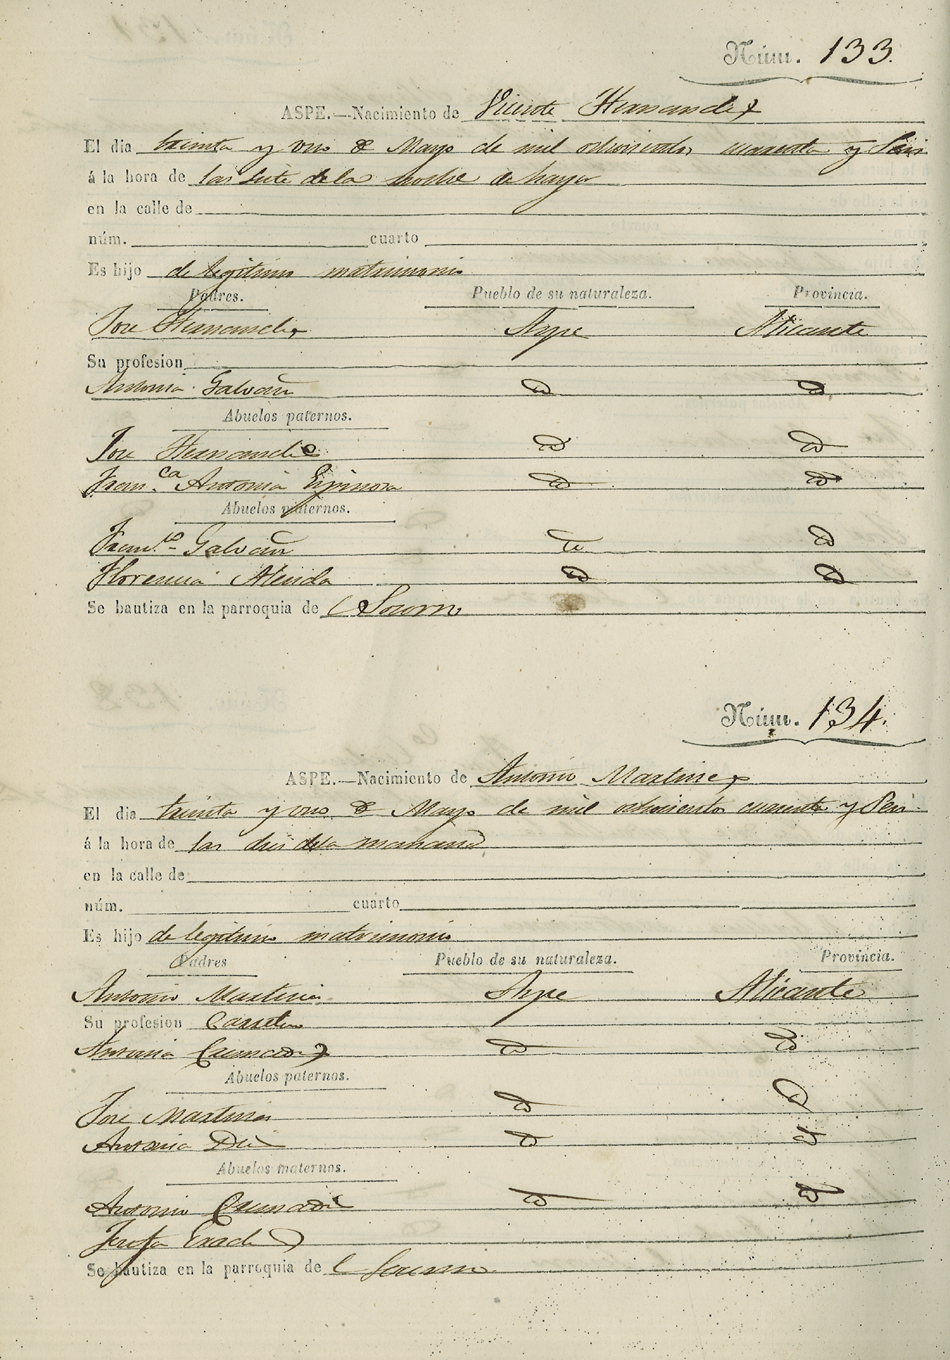 Núm. 133.
ASPE.—Nacimiento de Vicente Hernandez
El dia treinta y uno de Mayo de mil ochocientos cuarenta y Seis
á la hora de las siete de la noche de
en la calle de
núm. cuarto
Es hijo de legitimo matrimonio
Padres. Pueblo de su naturaleza. Provincia.
Jose Hernandez Aspe Alicante
Su profesion
Antonia Galvañ
Abuelos paternos.
Jose Hernandez
Fran.ca Antonia Espinosa
Abuelos maternos.
Fran.co Galvañ
Florencia Alenda
Se bautiza en la parroquia de el Socorro
Núm. 134.
ASPE.—Nacimiento de Antonio Martinez
El dia treinta y uno de Mayo de mil ochocientos cuarenta y Seis
á la hora de las de la mañana
en la calle de
núm. cuarto
Es hijo de legitimo matrimonio
Padres Pueblo de su naturaleza. Provincia.
Antonio Martinez Aspe Alicante
Su profesion
Antonia
Abuelos paternos.
Jose Martinez
Antonia
Abuelos maternos.
Antonio
Josefa
Se bautiza en la parroquia de el Socorro